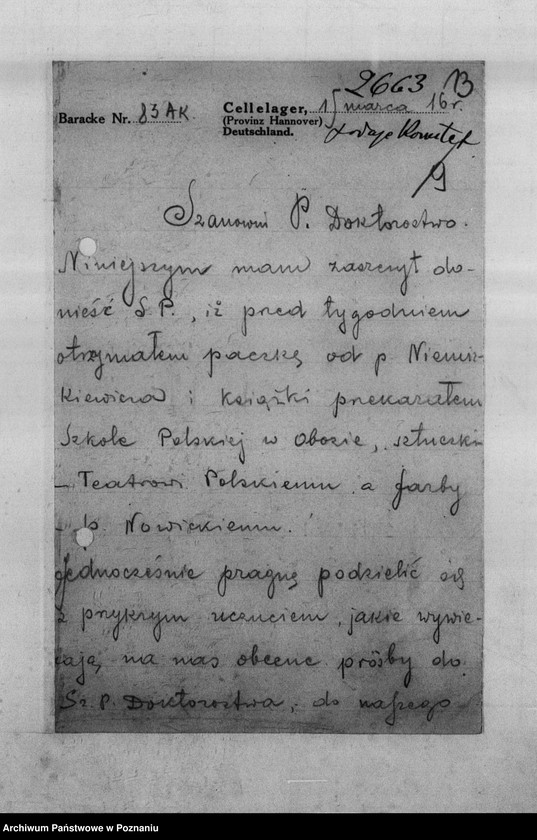 2663 B
Baracke Nr. 83 AK.
Cellelager, 15 marca 16 r.
(Provinz Hannover)
Deutschland.
Komitet
9
Szanowni P. Doktorostwo.
Niniejszym mam zaszczyt do-
nieść S.P., iż pred tygodniem
otrzymałem paczkę od p. Niemir-
kiewicza i książki prekazałem
Szkole Polskiej w obozie, sztuczki
– Teatrowi Polskiemu a farby
– p. Nowickiemu.
Jednocześnie pragnę podzielić się
z prykrym uczuciem, jakie wywie-
rają na nas obcene prośby do
Sz. P. Doktorostwa, do naszego
Archiwum Państwowe w Poznaniu